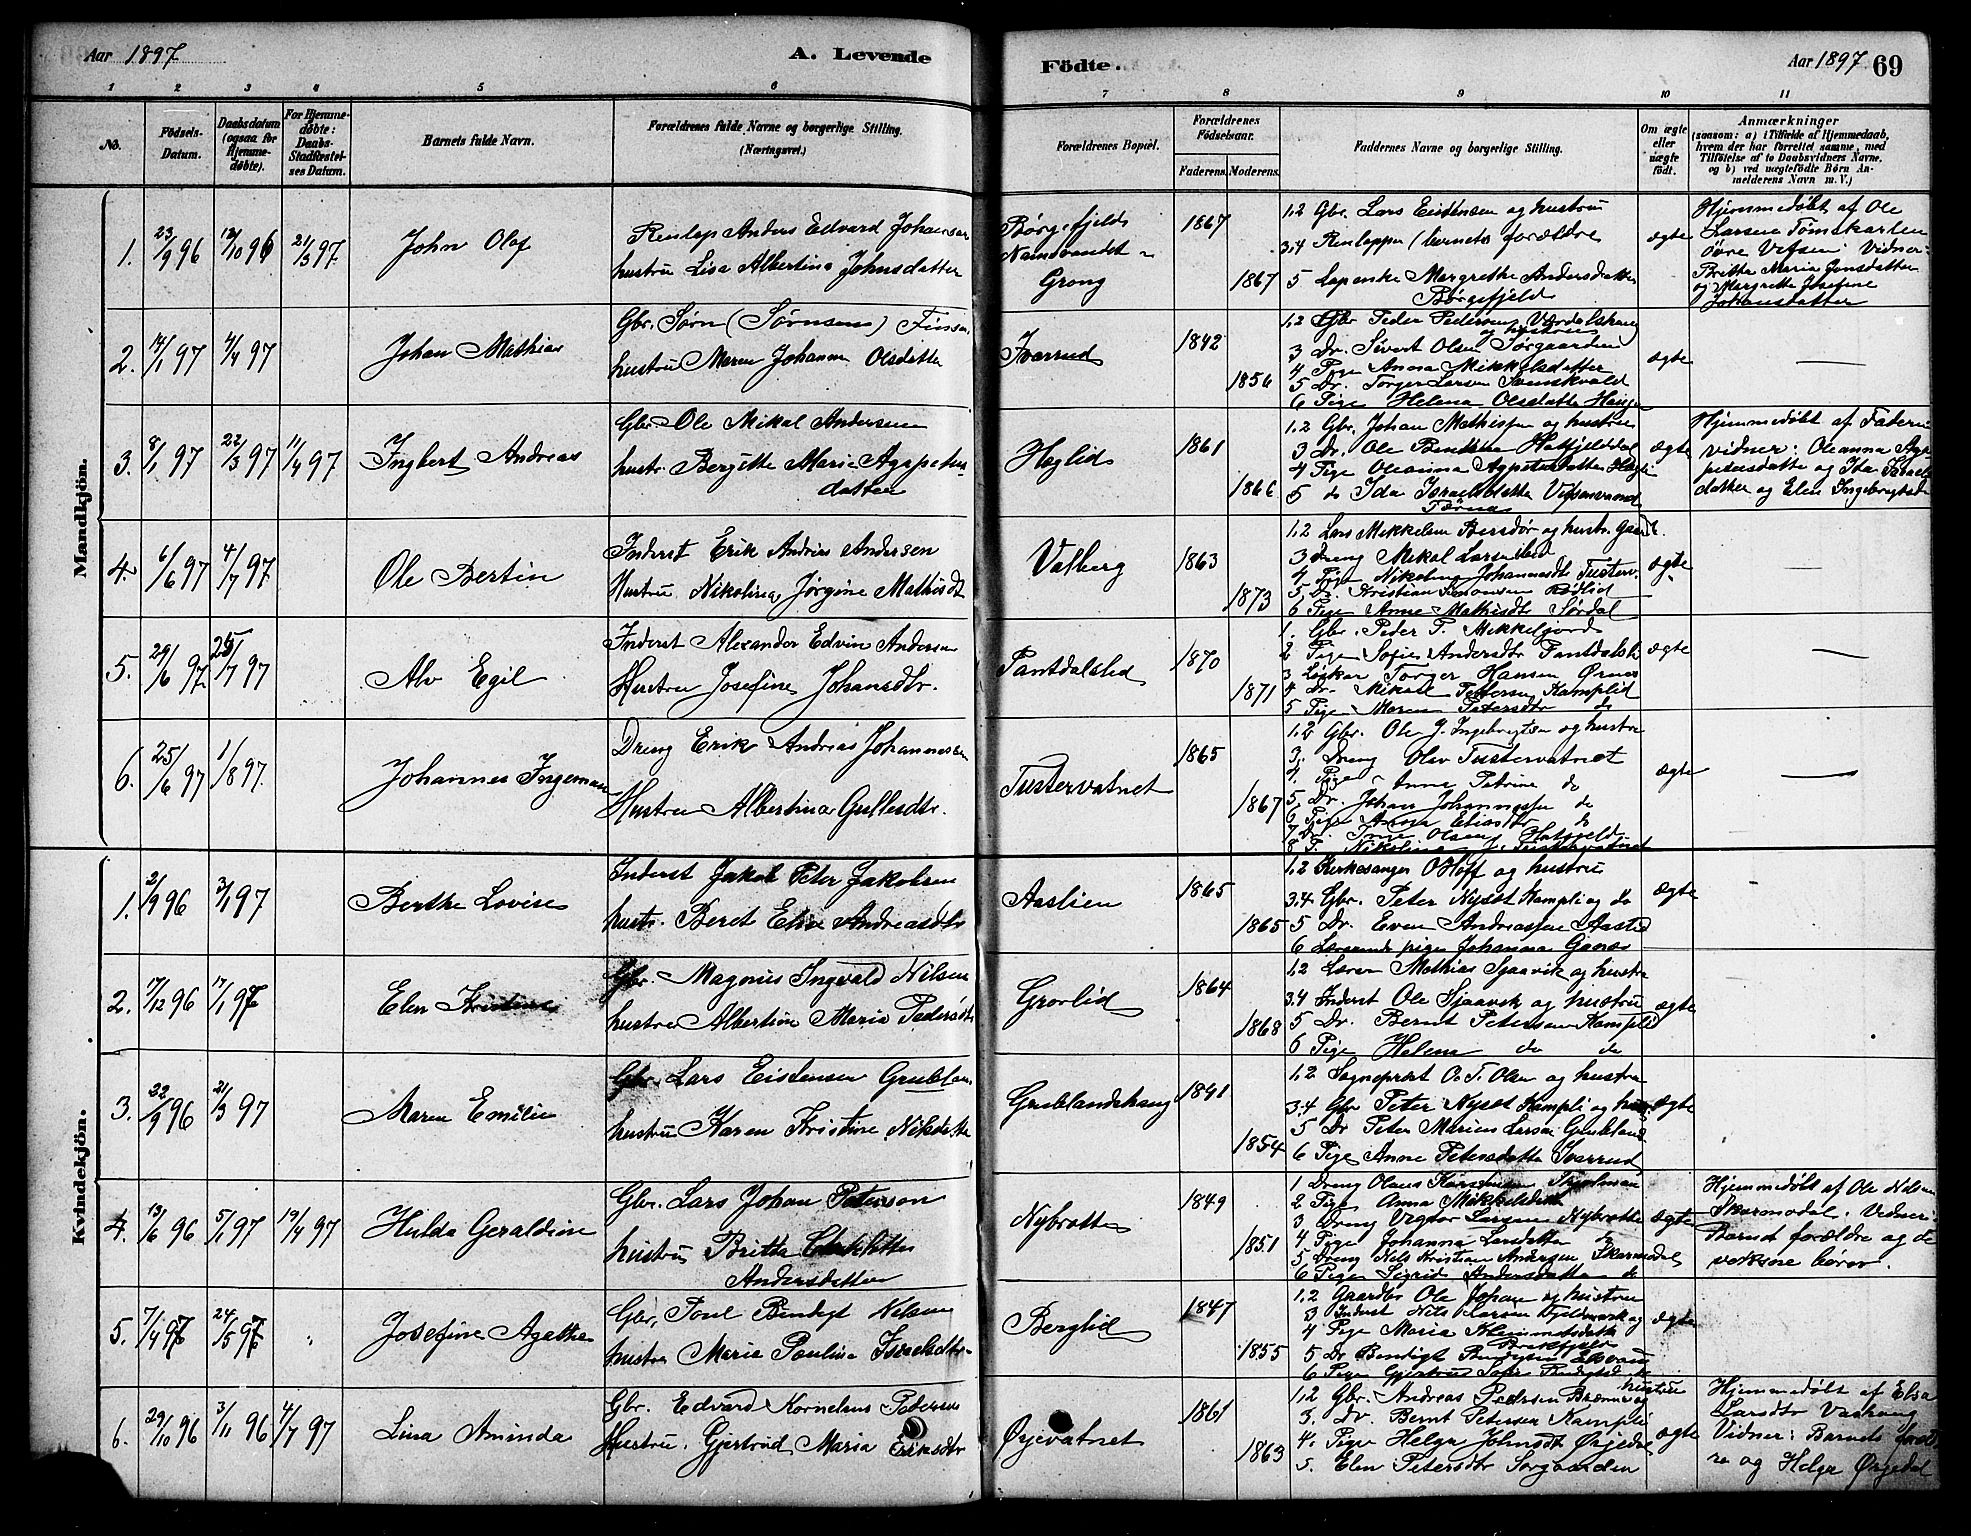 Aar 1897
A. Levende
Födte.
Aar 1897 69
1 2 3 4 5 6 7 8 9 10 11
No.
Födsels-
Datum.
Daabsdatum
(ogsaa for
Hjemme-
døbte).
For Hjemme-
døbte:
Daabs-
Stadfæstel-
ses Datum.
Barnets fulde Navn.
Forældrenes fulde Navne og borgerlige Stilling.
(Næringsvei.)
Forældrenes Bopæl.
Forældrenes
Födselsaar.
Faderens. Moderens.
Faddernes Navne og borgerlige Stilling.
Om ægte
eller
uægte
født.
Anmærkninger
(saasom: a) i Tilfælde af Hjemmedaab,
hvem der har forrettet samme, med
Tilföielse af to Daabsvidners Navne,
og b) ved uægtefödte Börn An-
melderens Navn m. V.)
Mandkjön.
1. 23/9 96 12/10 96 21/3 97 John Olaf
Renlap Anders Edvard Johansen
hustru Lisa Albertina Johnsdatter
Børgefjeld
Namsvandt
Grong
1867
1867
1,2 Gbr. Lars Eistensen og hustru
3.4 Renlapper (barnets forældre
5 Lapenske Margrethe Andersdatter
Børgefjeld
ægte
Hjemmedøbt af Ole
Larsen Tomaskarlen
øvre Vefsen. Vidner:
Britta Maria Jonsdatter
og Margrette Josefine
Johansdatter
2. 14/1 97 4/4 97 Johan Mathias
Gbr. Sørn (Sørnsen) Finsen
hustru Maren Johanna Olsdatter
Ivarrud
1842
1856
1,2 Gbr Peder Pedersen
og hustru
3 Dr. Sivert Olsen Sørgaarden
4 Pige Anna Mikkelsdatter
5 Dr. Torger Larsen Svenskvold
6 Pige Helena Olsdatter Haugen
ægte
—
3. 8/1 97 22/3 97 11/4 97 Ingbert Andreas
Gbr. Ole Mikal Andersen
hustr. Bergitte Marie Agapetus
datter
Heglid
1861
1866
1.2 Gbr. Johan Mathissen og hustru
3 Dr. Ole Hatfjelddal
4 Pige Oleanna
5 do Ida Israelsdatter Vefsenvand
Tærna
ægte
Hjemmedøbt af Faderen
vidner: Oleanna Aga
petusdatter og Ida Israels
datter og Elen Ingebrigtsd.
4. 6/6 97 4/7 97 Ole Bertin
Inderst Erik Andrias Andersen
Hustru Nikolina Jørgine Mathisdt
Valberg
1863
1873
1.2 Lars Mikkelsen og hustr.
3 Dreng Mikal Larsen
4 Pige Nikolina Johannesdt Tusterv.
5 Dr. Kristian Simonsen Rødlid
6 Pige Anne Mathisdtr Sørdal
ægte
—
5. 29/6 97 25/7 97 Alv Egil
Inderst Alexander Edvin Andersen
Hustru Josefine Johansdtr.
Pantdalslid
1870
1871
1. Gbr. Peder P. Mikkeljord
2 Pige Sofie Andersdtr Pantdalsli
3 Torger Hansen Ørnes
4 Dr. Mikal Pettersen Kamplid
5 Pige Maren Petersdtr do
ægte
—
6. 25/6 97 1/8 97. Johannes Ingeman
Dreng Erik Andreas Johannessen
Hustru Albertina Gullesdtr.
Tustervatnet
1865
1867
1,2 Gbr. Ole J. Ingebrigtsen og hustru
3. Dreng Olav Tustervatnet
4. Pige Anne Petrine do
5. Dr. Johan Johannessen do
6 Pige Anna Eliasdtr do
7 Dr. Olsen Hatfjeld
8 P. Nikolina J. Tustervatnet
ægte
—
Kvindekjön.
1. 2/9 96 3/1 97 Berthe Lovise
Inderst Jakob Peter Jakobsen
hustr. Beret Elise Andreasdtr
Aaslien
1865
1865
1.2 Kirkesanger O Hoff og hustru
3.4 Gbr. Peter Nysæt Kampli og do
5 Dr. Even Andreassen Aaslid
6 pige Johanna
ægte
2. 17/12 96 17/1 97 Elen Kristine
Gbr. Magnus Ingvald Nilsen
hustru Albertine Maria Pedersdtr
Grorlid
1864
1868
1,2 Lærer Mathias Sjaavik og hustru
3.4 Inderst Ole Sjaavik og hustru
5 Dr. Bernt Petersen Kampli
6 Pige Helena do do
ægte
3. 22/9 96 21/3 97 Maren Emilie
Gbr. Lars Eistensen Grubland
hustru Karen Kristine Nilsdatter
Grublandshaug
1841
1854
1,2 Sogneprest O. T. Olsen og hustru
3.4 Gbr Peter Nysæt Kampli og hustru
5 Dr Peter Marius Larsen Grubland
6 Pige Anne Petersdatter Ivarrud
ægte
4. 13/6 96 5/1 97 19/4 97 Hulda Geraldine
Gbr. Lars Johan Peterson
hustru Britta
Andersdatter
Nybrotte
1849
1851
1 Dreng Olaus
2 Pige Anna Mikkelsdatter
3 Dreng Viktor Larsen Nybrotte
4 Pige Johanna Larsdatter do
5 Dreng Nels Kristian Andersen Skarmodal
6 Pige Sigrid Andersdatter do
ægte
Hjemmedøbt af Ole Nilsen
Skarmodal. Vidner:
Barnets forældre og de
voksne børn.
5. 7/4 97 24/5 97 " Josefine Agathe
Gbr. Poul Bendigt Nilsen
hustru Maria Paulina Israelsdtr
Berglid
1847
1855
1.2 Gaardbr Ole Johan og hustru
3 Inderst Nils Larsen
4 Pige Maria Klemmetsdatter
5 Dr Bendigt
6 Pige Gjertrud Sofie
ægte
6. 29/10 96 3/11 96 4/7 97 Lina Aminda
Gbr. Edvard Kornelius Pedersen
Hustru. Gjertrud Maria Eriksdtr
Ørjevatnet
1861
1863
hustru
1,2 Gbr. Andreas Pedersen og
3. Dr. Bernt Petersen Kampli
4. Pige Helga Johnsdt Ørjedal
5. Elen Petersdtr Sørgaarden
ægte
Hjemmedøbt af Elsa
Larsdtr
Vidner: Barnets foræld
re og Helga Ørjedal